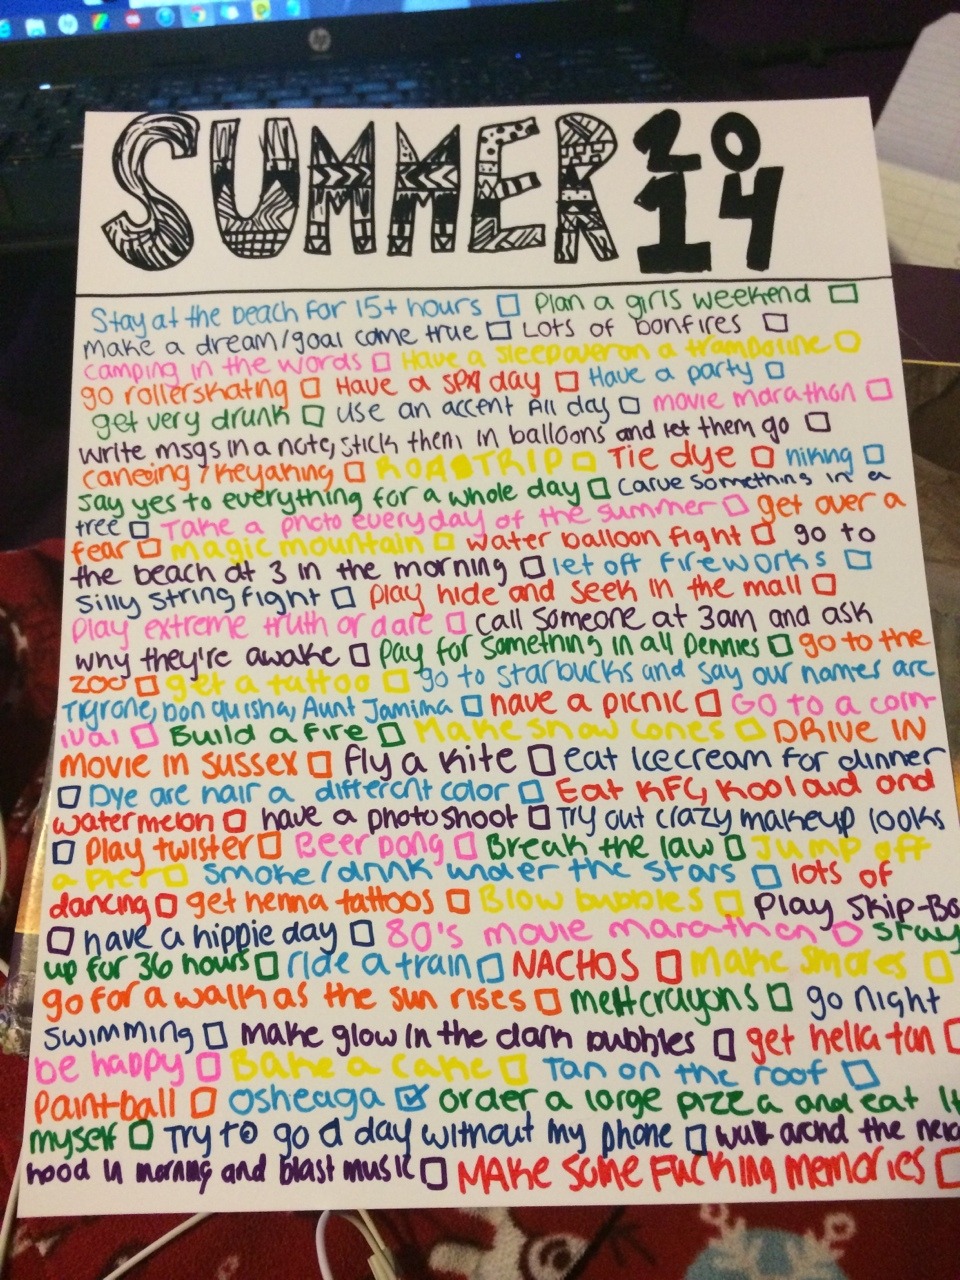 hp
SUMMER 2014
Stay at the beach for 15+ hours □ Plan a girls weekend □
Make a dream/goal come true □ Lots of bonfires □
camping in the words □ Have a sleepover on a trampoline □
go rollerskating □ Have a SPA day □ Have a party □
get very drunk □ use an accent All day □ movie marathon □
write msgs in a note, stick them in balloons and let them go □
canoeing / Keyaking □ ROADTRIP □ Tie dye □ hiking □
say yes to everything for a whole day □ carve something in a
tree □ Take a photo everyday of the summer □ get over a
fear □ magic mountain □ water balloon fight □ go to
the beach at 3 in the morning □ let off fireworks □
silly string fight □ play hide and seek in the mall □
Play extreme truth or dare □ call someone at 3am and ask
why they're awake □ Pay for something in all Pennies □ go to the
zoo □ get a tattoo □ go to starbucks and say our names are
Tigrone, bon quisha, Aunt Jamina □ have a picnic □ Go to a carn-
ival □ Build a fire □ Make snow cones □ DRIVE IN
MOVIE IN SUSSEX □ Fly a kite □ eat Icecream for dinner
□ Dye are hair a different color □ Eat KFC, Koolaid and
watermelon □ have a photoshoot □ Try out crazy makeup looks
□ Play twister □ Beer pong □ Break the law □ Jump off
a pier □ Smoke/drink under the stars □ lots of
dancing □ get henna tattoos □ Blow bubbles □ Play Skip-Bo
□ have a hippie day □ 80's movie marathon □ Stay
up for 36 hours □ ride a train □ NACHOS □ Make Smores □
go for a walk as the sun rises □ melt crayons □ go night
swimming □ make glow in the dark bubbles □ get hella tan □
be happy □ Bake a cake □ Tan on the roof □
Paintball □ Osheaga ☑ order a large pizza and eat it
myself □ Try to go a day without my phone □ walk arond the
hood in morning and blast music □ MAKE Some FUCKING MEMORIES □